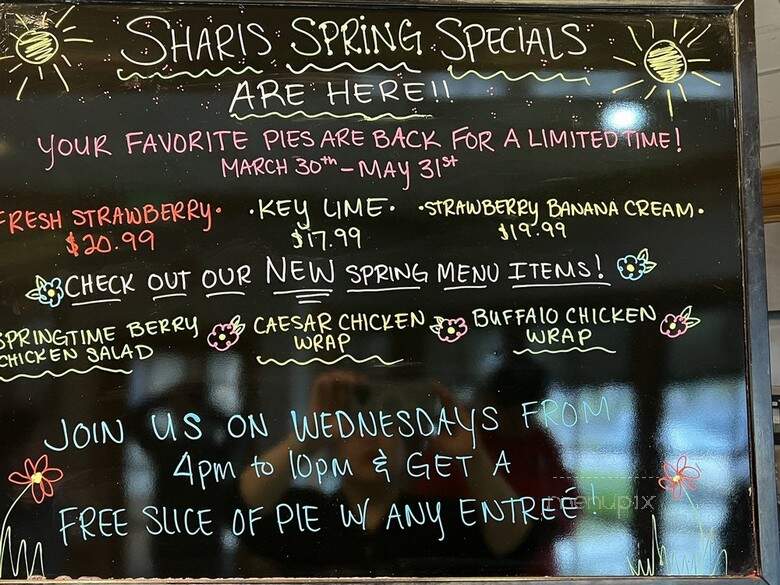 SHARIS SPRING SPECIALS
ARE HERE!!
YOUR FAVORITE PIES ARE BACK FOR A LIMITED TIME!
MARCH 30th - MAY 31st
FRESH STRAWBERRY · · KEY LIME · · STRAWBERRY BANANA CREAM ·
$20.99 $17.99 $19.99
CHECK OUT OUR NEW SPRING MENU ITEMS!
SPRINGTIME BERRY CAESAR CHICKEN BUFFALO CHICKEN
CHICKEN SALAD WRAP WRAP
JOIN US ON WEDNESDAYS FROM
4pm to 10pm & GET A
FREE SLICE OF PIE W/ ANY ENTREÉ!
menupix